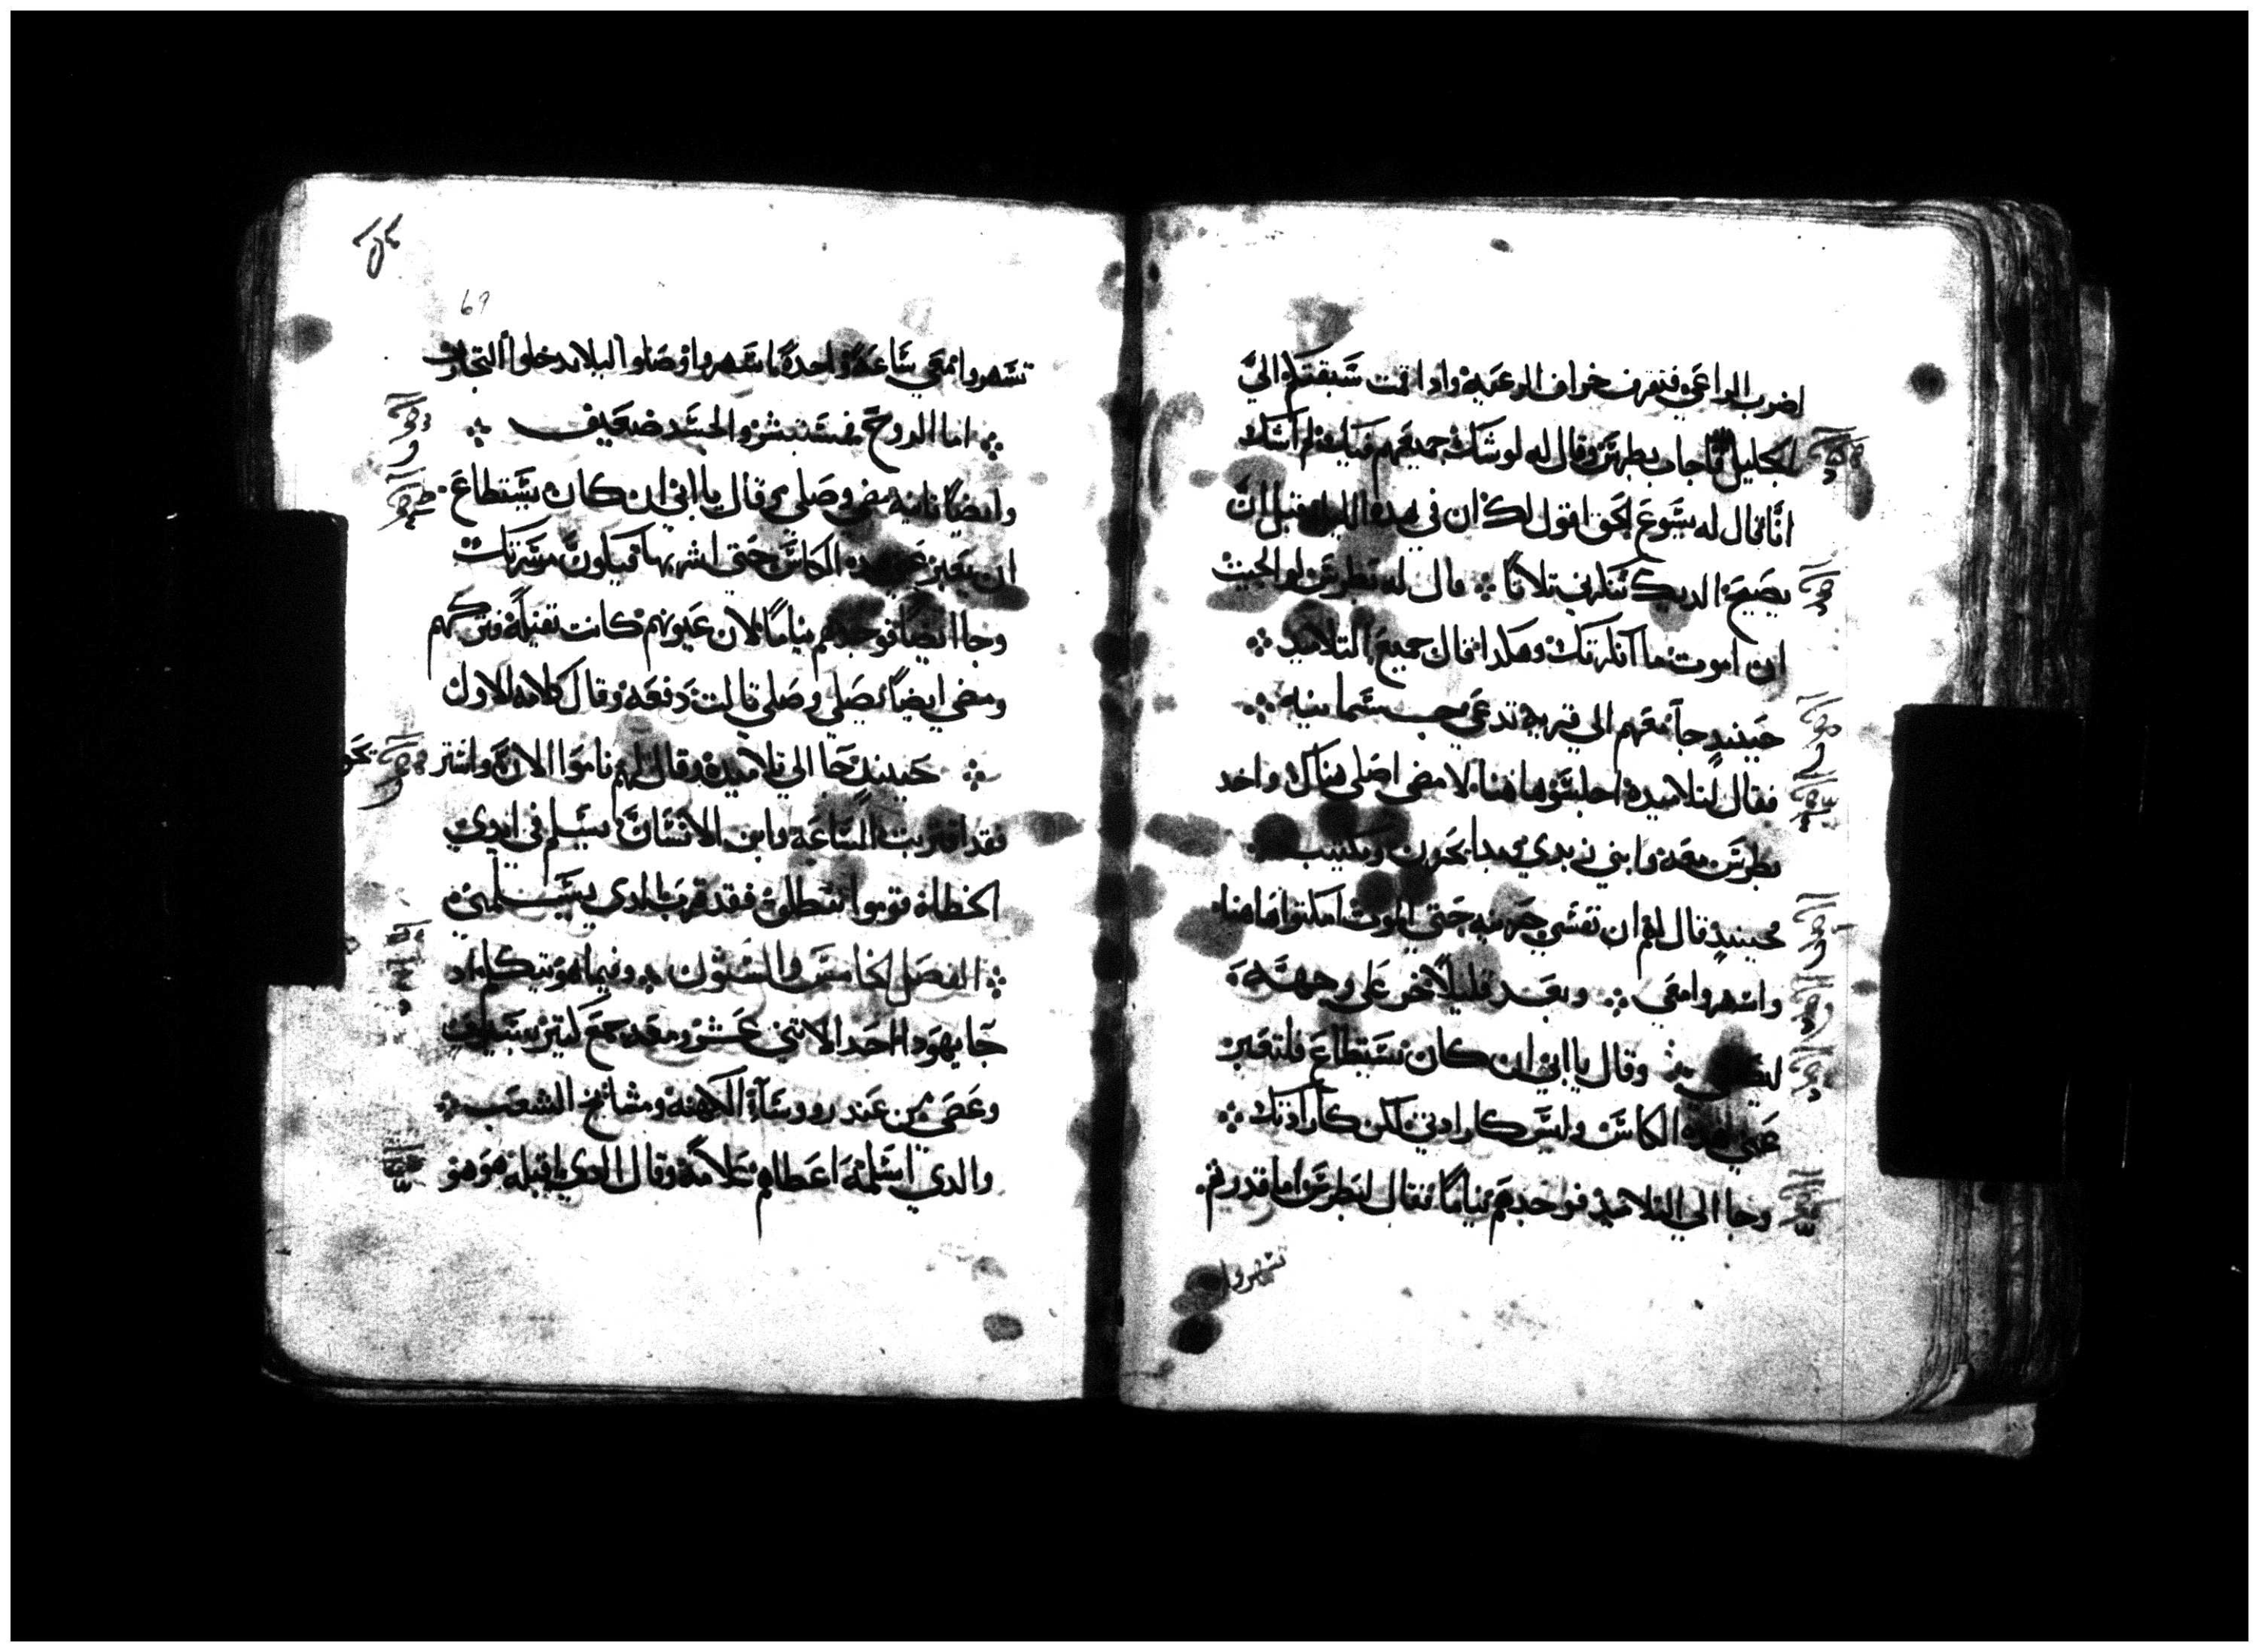 اضرب الراعي فتفرق خراف الرعية واذا قمت سبقتكم الي
الجليل فاجاب بطرس وقال له لو شك جميعهم فيك فلم اشك
انا قال له يسوع الحق اقول لك ان في هذه الليلة قبل ان
يصيح الديك تنكرني ثلاثا قال له بطرس لو الجيت
ان اموت ما انكرتك وهكدا قال جميع التلاميد
حينيد جا معهم الي قرية تدعي جسمانيه
فقال لتلاميده اجلسوا هاهنا لامضي اصلي هناك واخد
بطرس معه وابني زبدي وبدا يحزن ويكتيب
فحينيد قال لهم ان نفسي حزينه حتي الموت امكتوا هاهنا
واسهروا معي وبعد قليلا خر علي وجهه
ليصلي وقال يا ابي ان كان تستطاع فلتعبر
عني هده الكاس وليس كارادتي لكن كارادتك
وجا الي التلاميد فوجدهم نياما فقال لبطرس اما قدرتم
تسهروا
69
تسهروا معي ساعة واحدة اسهروا وصلوا ليلا تدخلوا التجارب
اما الروح فمستبشر والجسد ضعيف
وايضا تانيه مضي وصلي وقال يا ابي ان كان يستطاع
ان تعبر هده الكاس حتي اشربها فيكون مسرتك
وجا ايضا فوجدهم نياما لان عيونهم كانت ثقيلة فتركهم
ومضي ايضا يصلي وصلي تالت دفعه وقال كلامه الاول
حينيد جا الي تلاميده وقال لهم ناموا الان واستر يحوا
فقد اقتربت الساعه وابن الانسان يسلم في ايدي
الخطاة قوموا ننطلق فقد قرب الدي يسلمني
الفصل الخامس والستون وفيما هو يتكلم اد
جا يهودا احد الاتني عشر ومعه جمع كتير بسيوف
وعصي من عند روسآء الكهنة ومشايخ الشعب
والدي اسلمه اعطاهم علامة وقال الدي اقبله هو هو